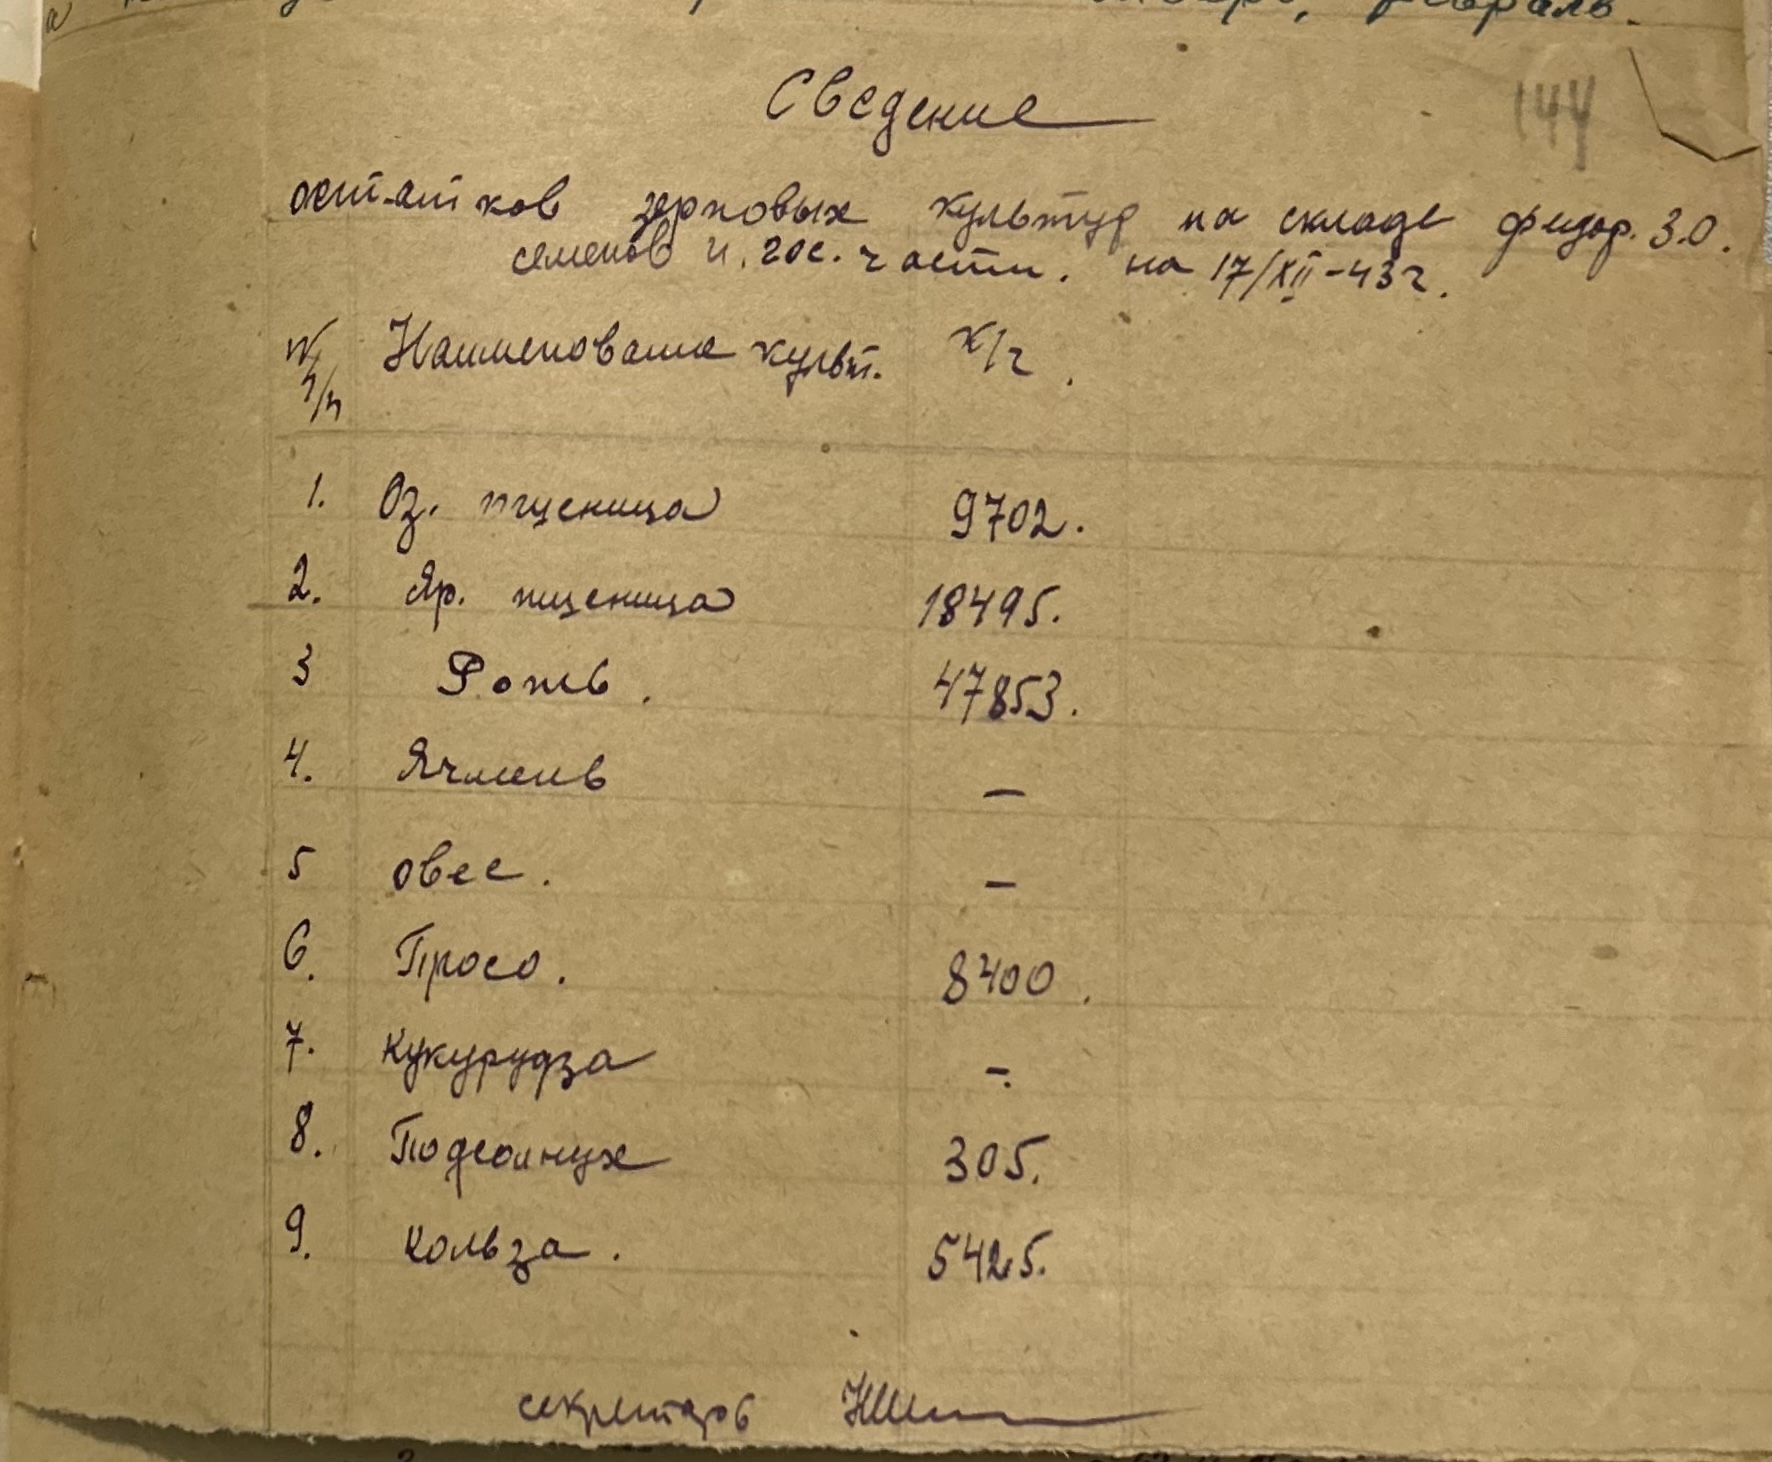 февраль.
144
Сведение
остатков зерновых культур на складе федор. З.О.
семенов и. гос. части. на 17/XII-43г.
№ п/п Наименование культ. к/г.
1. Оз. пшеница 9702.
2. Яр. пшеница 18495.
3 Рожь. 47853.
4. Ячмень —
5 овес. —
6. Просо. 8400.
7. Кукурудза —.
8. Подсолнух 305.
9. Кольза. 5425.
секретарь